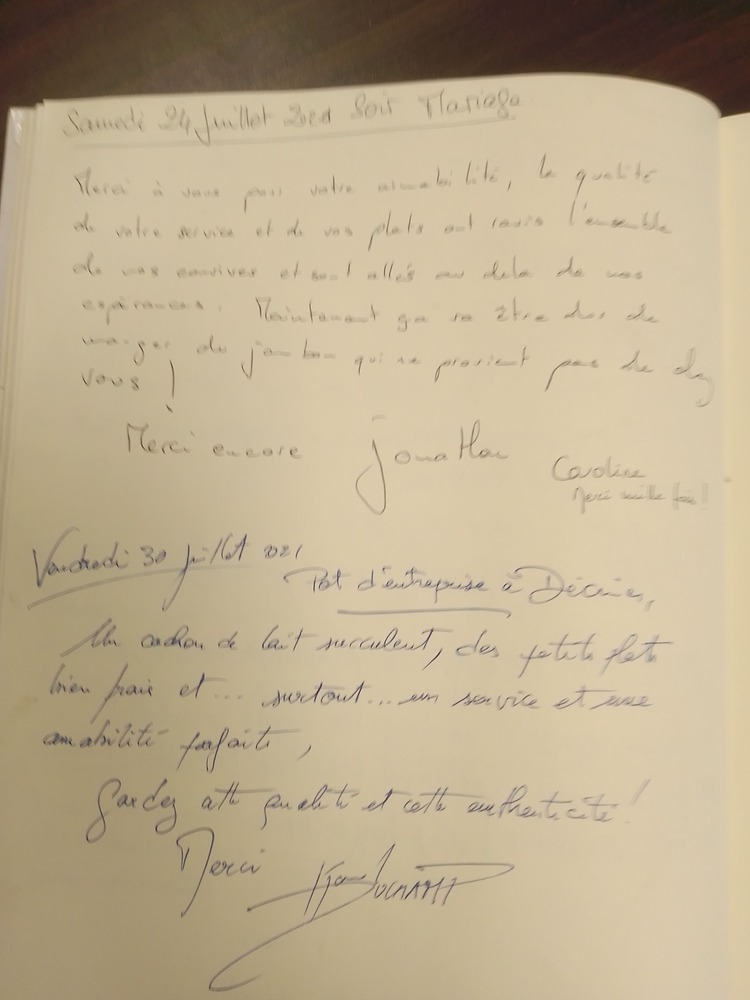 Samedi 24 Juillet 2021 Soir Mariage
Merci à vous pour votre aimabilité, la qualité
de votre service et de vos plats ont ravis l'ensemble
de nos convives et sont allés au dela de nos
espérances. Maintenant ça va être dur de
manger du jambon qui ne provient pas de chez
vous !
Merci encore Jonathan
Caroline
Merci mille fois !
Vendredi 30 Juillet 2021
Pot d'entreprise à Décines,
Un cochon de lait succulent, des petits plats
bien frais et... surtout... un service et une
amabilité parfaite,
Gardez cette qualité et cette authenticité !
Merci